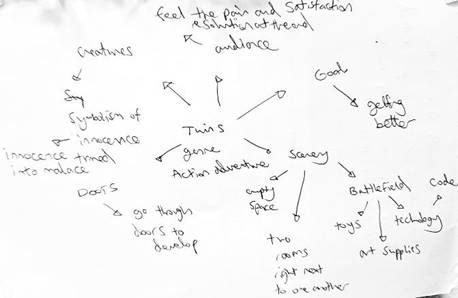 feel the pain and satisfaction
resolution at the end
audience
creatures
Goal
getting
better
Symbolism of
innocence
innocence turned
into malace
Twins
genre
Action adventure
Scenery
empty
space
Battlefield
Code
toys
technology
art supplies
Doors
go though
doors to
develop
two
rooms
right next
to one another